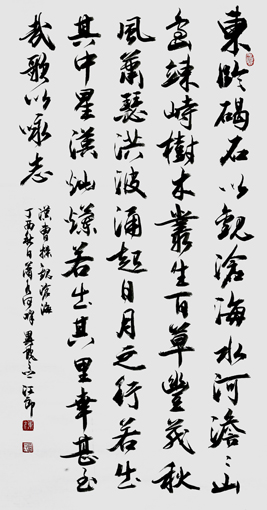 東臨碣石以觀滄海水何澹澹山
島竦峙樹木叢生百草豐茂秋
風蕭瑟洪波涌起日月之行若出
其中星漢燦爛若出其里幸甚至
哉歌以咏志
漢曹操觀滄海